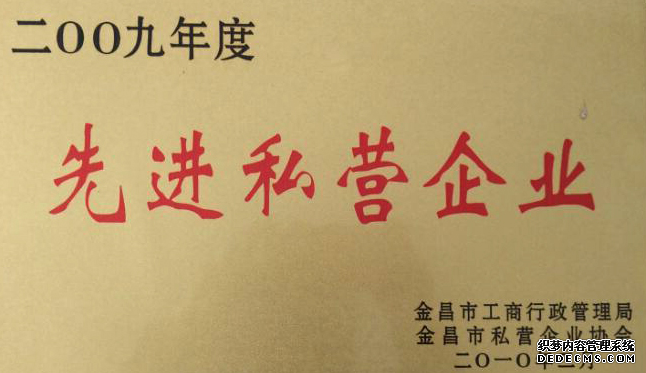 二〇〇九年度
先进私营企业
金昌市工商行政管理局
金昌市私营企业协会
二〇一〇年二月
织梦内容管理系统
DEDECMS.COM